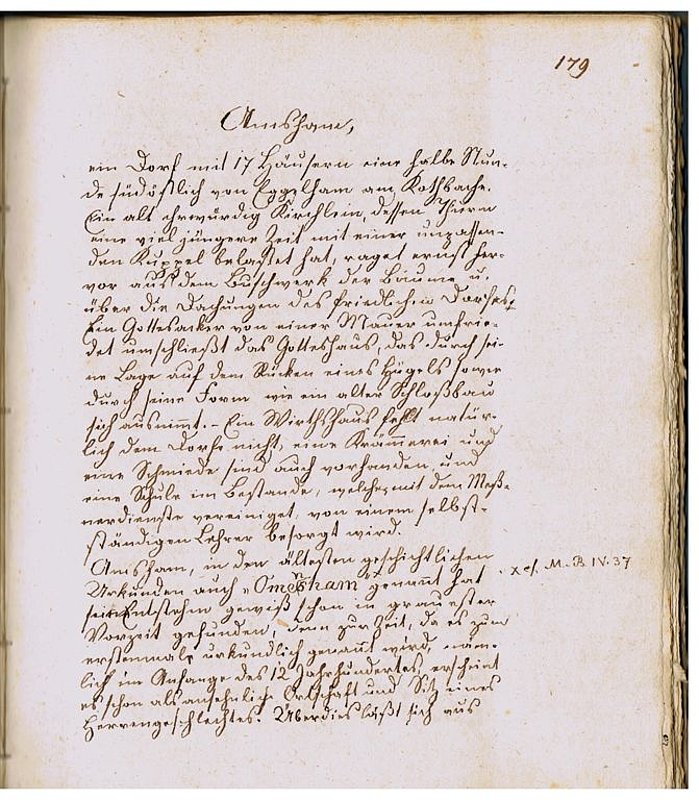 179
Amsham,
ein Dorf mit 17 Häusern eine halbe Stun-
de südöstlich von Egglham am Kothbache.
Ein alt ehrwürdig Kirchlein, dessen Thurm
eine viel jüngere Zeit mit einer unpassen-
den Kuppel belastet hat, raget ernst her-
vor aus dem Buschwerk der Bäume u.
über die Dachungen des friedlichen Dorfes.
Ein Gottesacker von einer Mauer umfrie-
det umschließt das Gotteshaus, das durch sei-
ne Lage auf dem Rücken eines Hügels sowie
durch seine Form wie ein alter Schloßbau
sich ausnimmt. - Ein Wirthshaus fehlt natür-
lich dem Dorfe nicht, eine Krämmerei und
eine Schmiede sind auch vorhanden und
eine Schule im Bestande, welche mit dem Meß-
nerdienste vereiniget, von einem selbst-
ständigen Lehrer besorgt wird.
Amsham, in den ältesten geschichtlichen
Urkunden auch „Omesham“ x genant hat
x cf. M. B. IV. 37
sein Entstehen gewiß schon in grauester
Vorzeit gefunden, denn zur Zeit, da es zum
erstenmale urkundlich genant wird, näm-
lich im Anfange des 12 Jahrhundertes, erscheint
es schon als ansehnliche Ortschaft und Sitz eines
Herrengeschlechtes. Überdies läßt sich aus